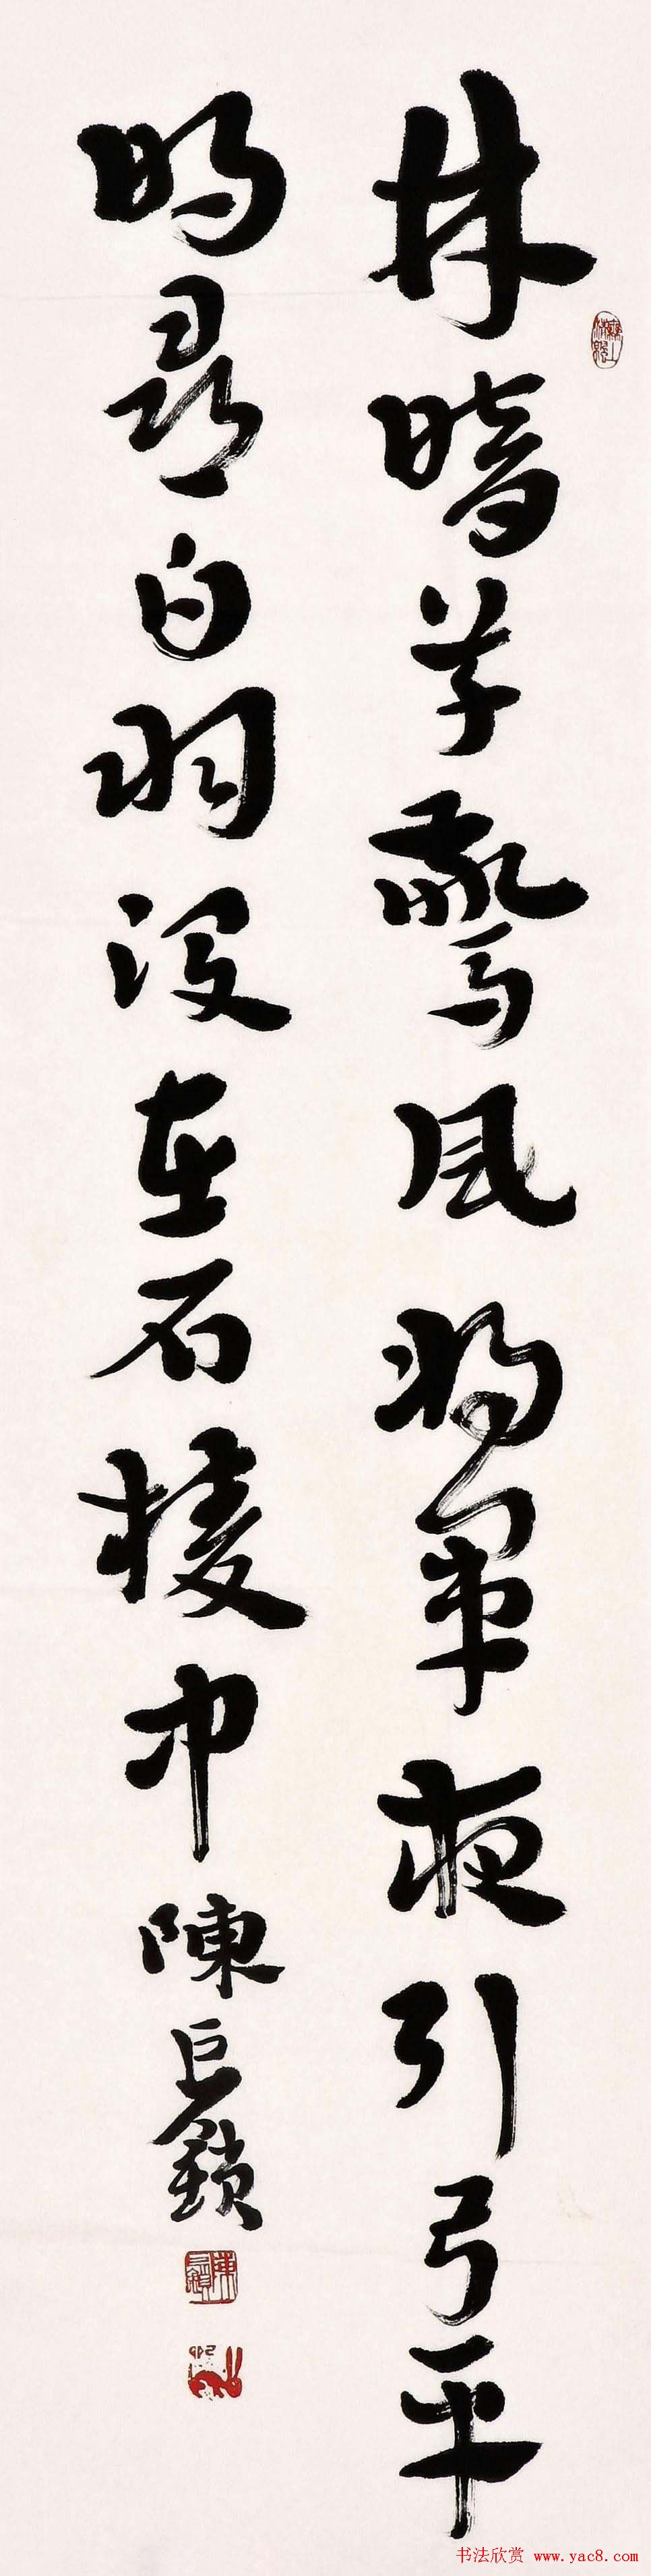 林暗草驚風將軍夜引弓平
明尋白羽沒在石棱中陳巨鎖
书法欣赏 www.yac8.com